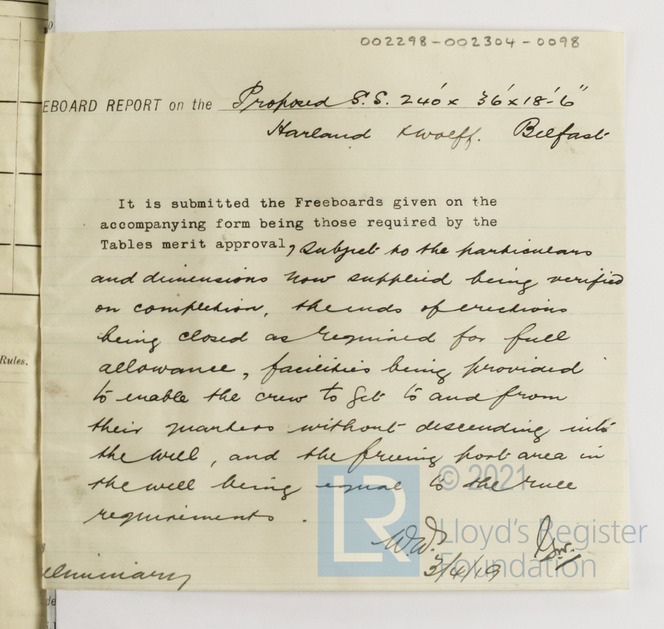 002298-002304-0098
EBOARD REPORT on the Proposed S.S. 240' x 36' x 18'-6"
Harland & Wolff. Belfast
It is submitted the Freeboards given on the
accompanying form being those required by the
Tables merit approval, subject to the particulars
and dimensions now supplied being verified
on completion, the ends of erections
being closed as required for full
allowance, facilities being provided
to enable the crew to get to and from
their quarters without descending into
the well, and the freeing port area in
the well being equal to the rule
requirements.
Rules.
W.W.
3/4/19
eliminary
LR
© 2021
Lloyd's Register
Foundation